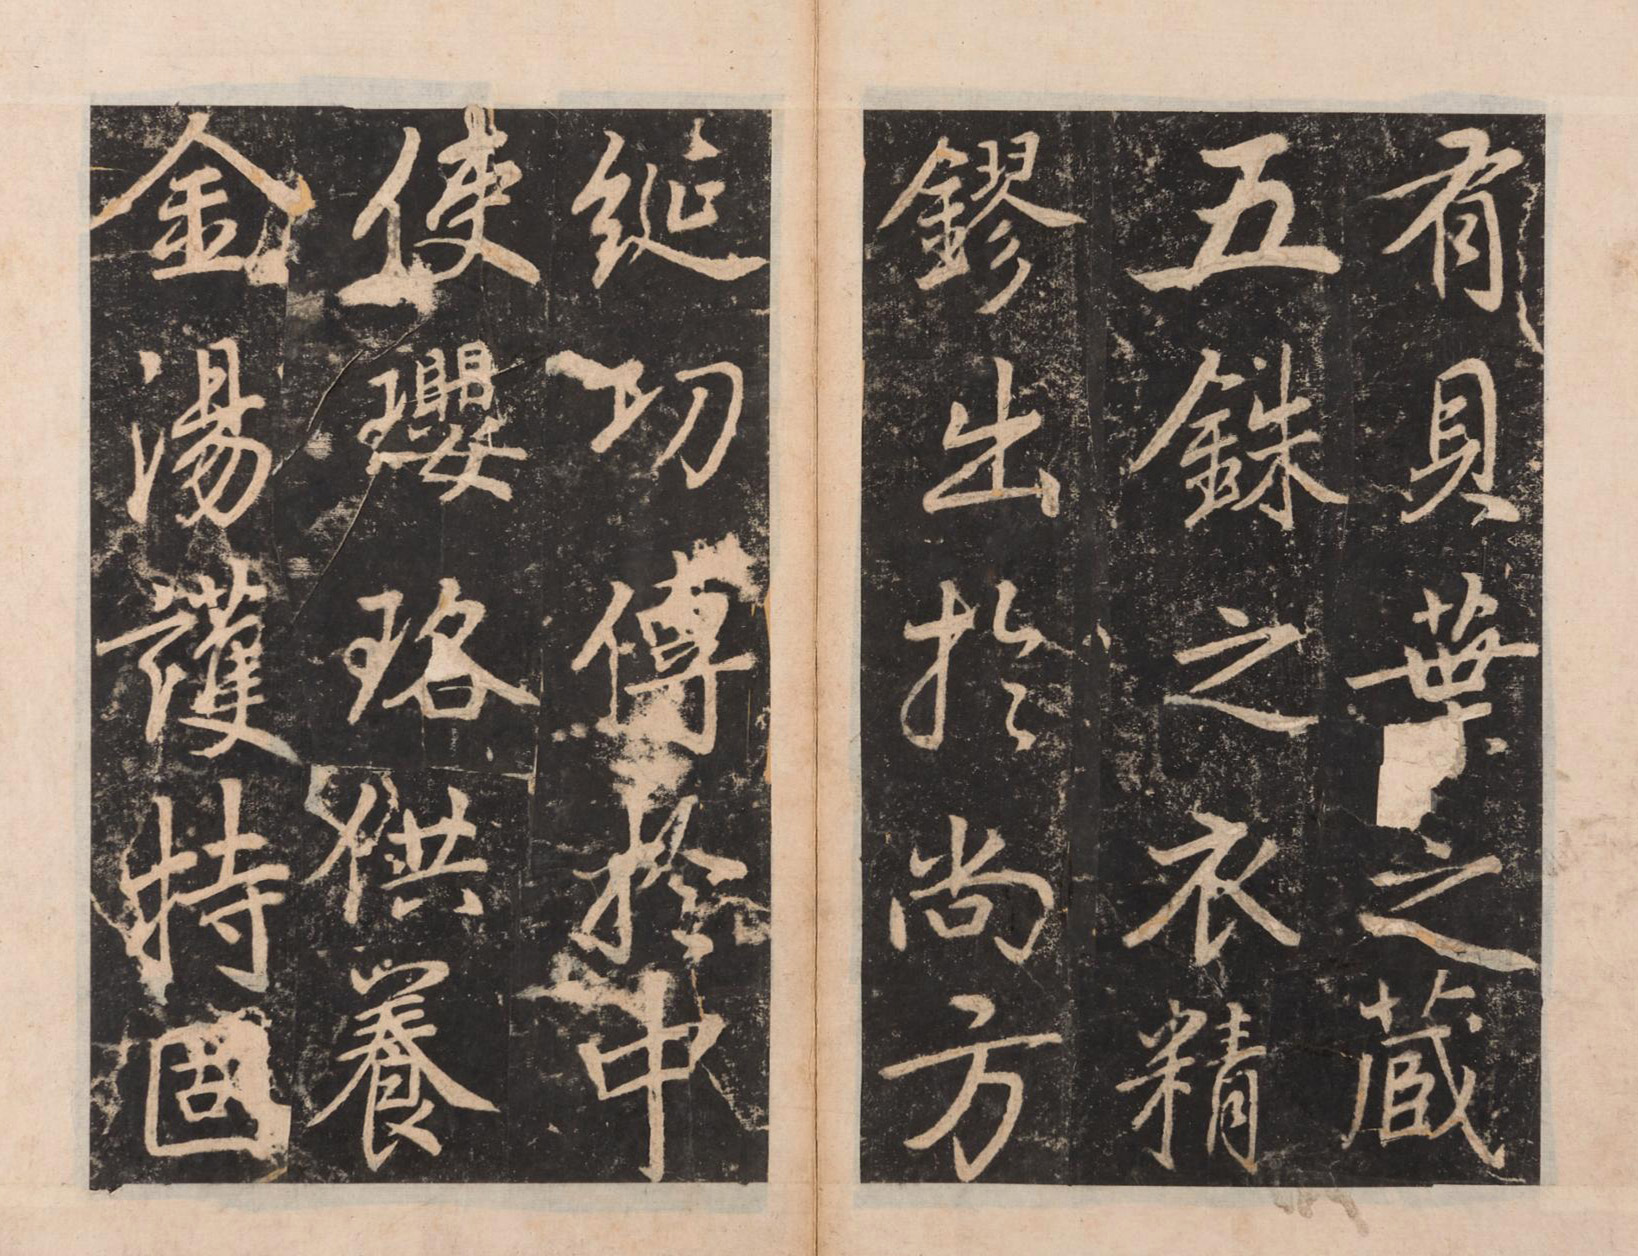 有貝葉之蔵
五銖之衣精
鏐出於尚方
綖功傅於中
使瓔珞供養
金湯護持固